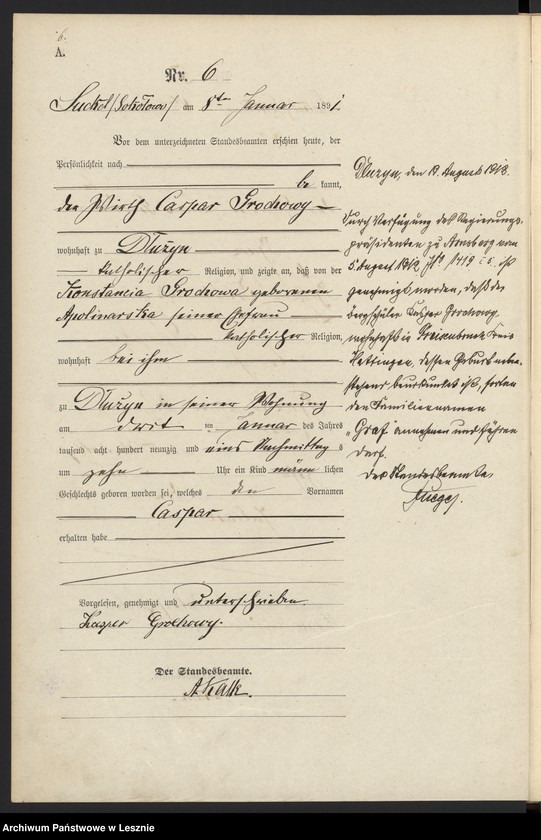 6.
A.
Nr. 6
Suckol/Sokołowo/ am 8ten Januar 1891.
Vor dem unterzeichneten Standesbeamten erschien heute, der
Persönlichkeit nach
be kannt,
der Wirth Caspar Grochowy
wohnhaft zu Dłużyn
katholischer Religion, und zeigte an, daß von der
Konstancia Grochowa geborenen
Apolinarska seiner Ehefrau
katholischer Religion,
wohnhaft bei ihm
zu Dłużyn in seiner Wohnung
am dritten Januar des Jahres
tausend acht hundert neunzig und eins Nachmittags
um zehn Uhr ein Kind männlichen
Geschlechts geboren worden sei, welches den Vornamen
Caspar
erhalten habe
Vorgelesen, genehmigt und unterschrieben.
Kasper Grochowy.
Der Standesbeamte.
A. Kalk.
Dłuzyn, den 19. August 1912.
Durch Verfügung des Regierungs-
präsidenten zu Arnsberg vom
5. August 1912 ist
genehmigt worden, daß der
Bergschüler Kasper Grochowy,
wohnhaft in Kreis
Hattingen, dessen Geburt neben-
stehend beurkundet ist, fortan
den Familiennamen
„Graf" annehmen und führen
darf.
Der Standesbeamte